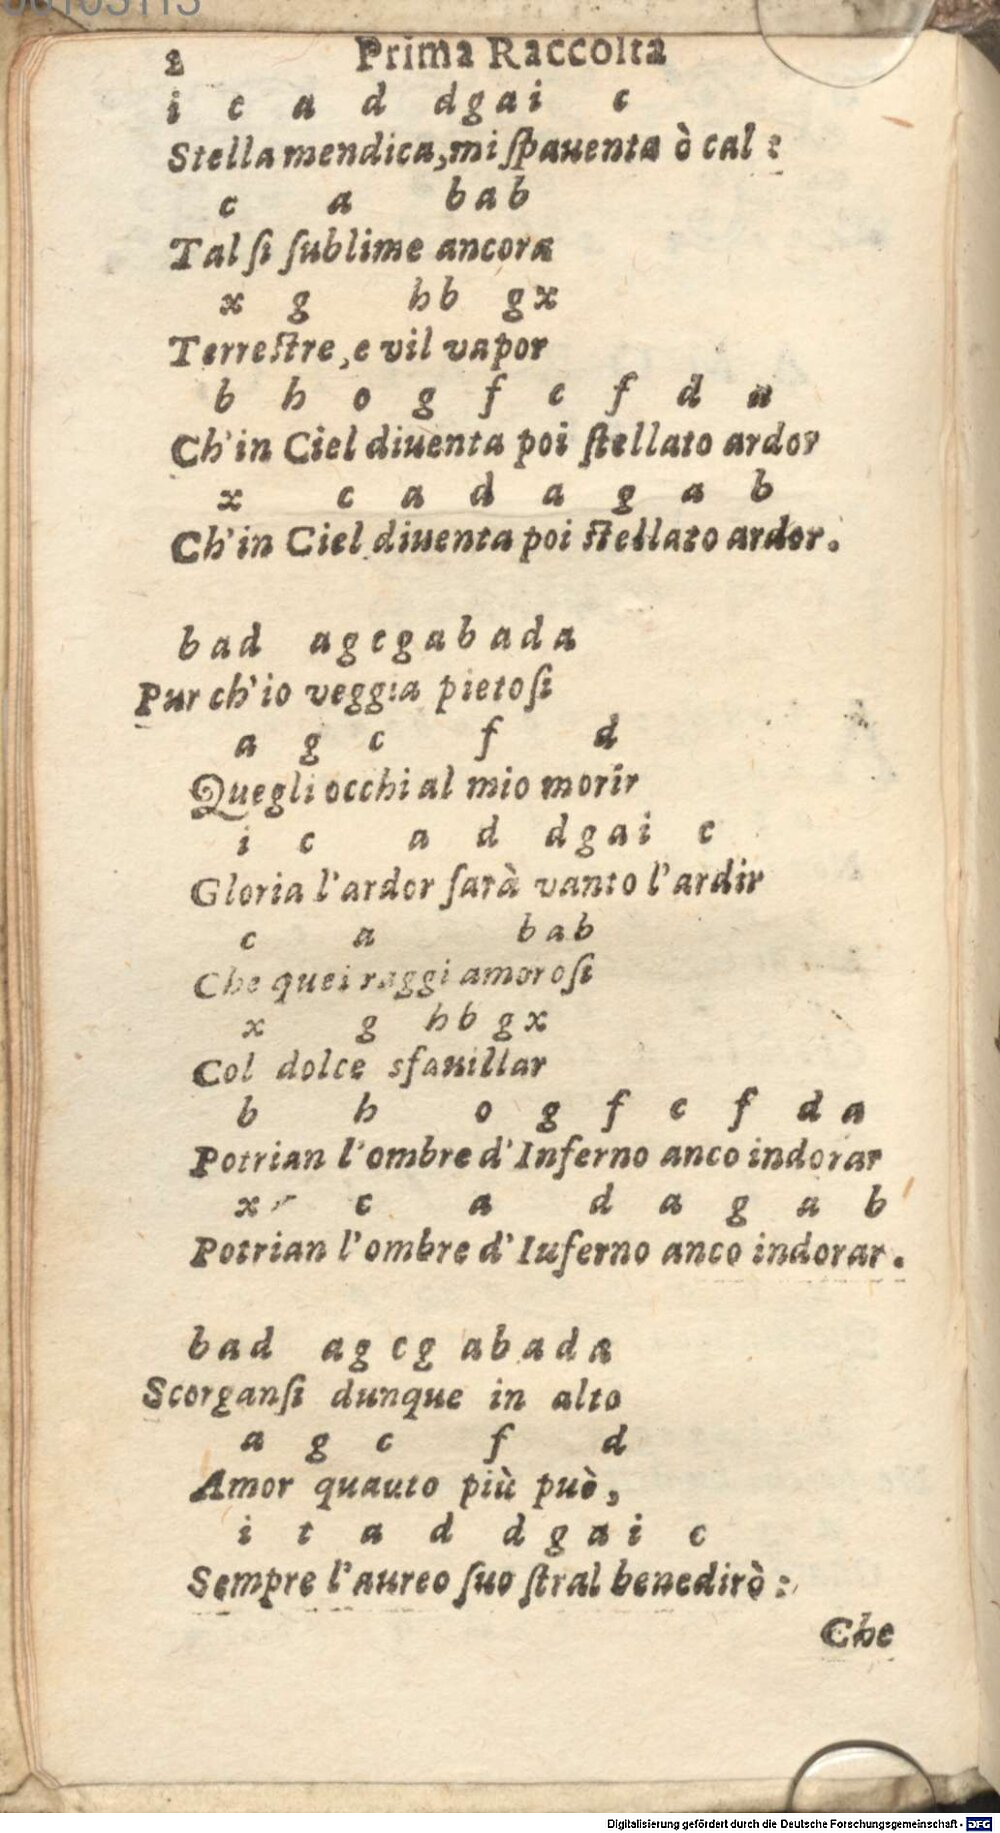 2 Prima Raccolta
i c a d d g a i c
Stella mendica, mi ſpauenta ò cal :
c a b a b
Tal ſi ſublime ancora
x g h b g x
Terreſtre, e vil vapor
b h o g f c f d a
Ch'in Ciel diuenta poi ſtellato ardor
x c a d a g a b
Ch'in Ciel diuenta poi ſtellato ardor.
b a d a g c g a b a d a
Pur ch'io veggia pietoſi
a g c f d
Quegli occhi al mio morir
i c a d d g a i c
Gloria l'ardor ſarà vanto l'ardir
c a b a b
Che quei raggi amoroſi
x g h b g x
Col dolce sfauillar
b h o g f c f d a
Potrian l'ombre d'Inferno anco indorar
x c a d a g a b
Potrian l'ombre d'Iuferno anco indorar.
b a d a g c g a b a d a
Scorganſi dunque in alto
a g c f d
Amor quauto più può,
i t a d d g a i c
Sempre l'aureo ſuo ſtral benedirò :
Che
Digitalisierung gefördert durch die Deutsche Forschungsgemeinschaft - DFG